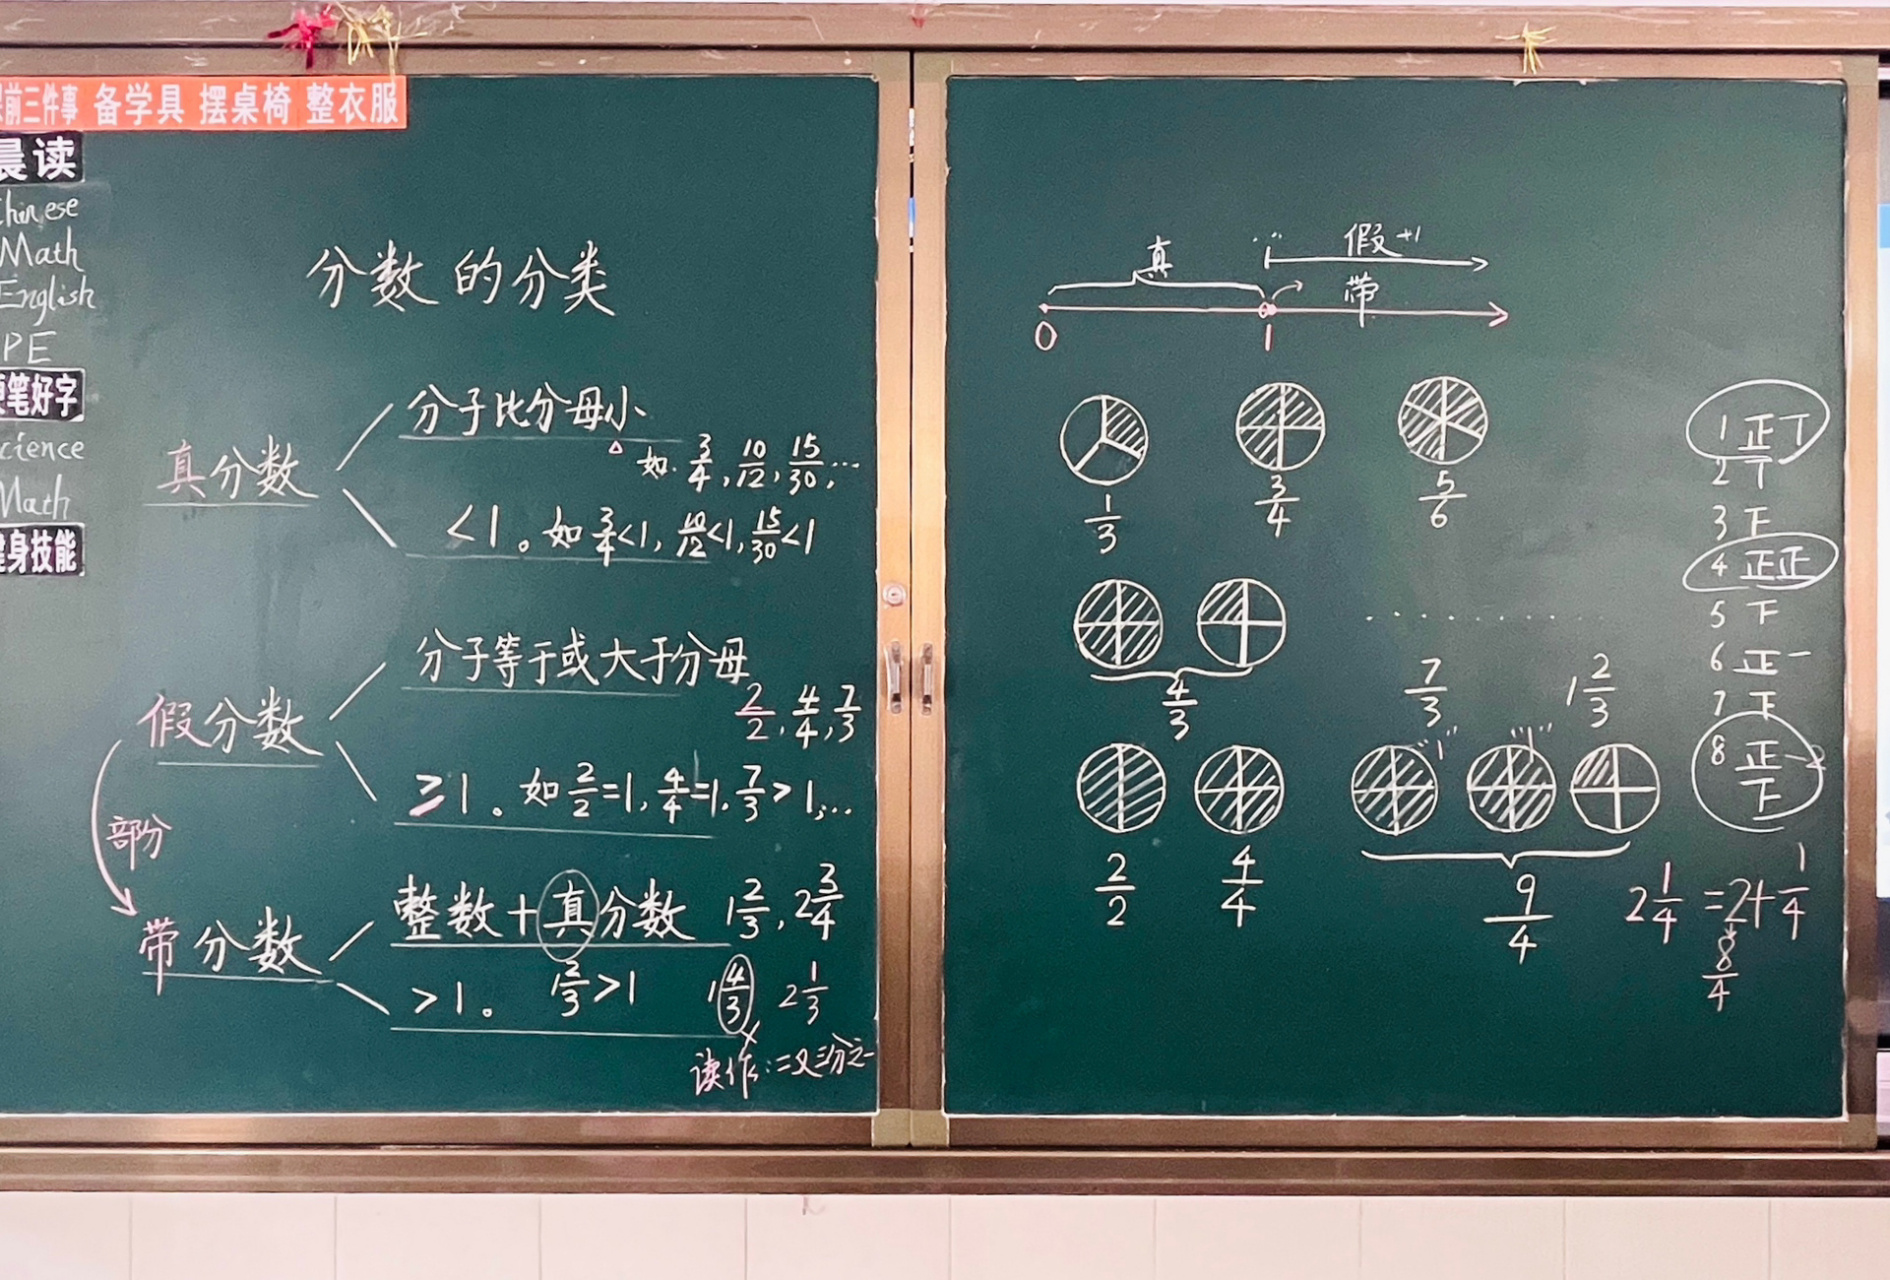 前三件事 备学具 摆桌椅 整衣服
晨读
Chinese
Math
English
PE
硬笔好字
Science
Math
健身技能
分数的分类
真分数
分子比分母小
如. 3/4, 10/12, 15/30, …
<1。如 3/4<1, 10/12<1, 15/30<1
假分数
分子等于或大于分母
2/2, 4/4, 7/3
≥1。如 2/2=1, 4/4=1, 7/3>1, …
部分
带分数
整数+真分数 1 2/3, 2 3/4
>1。 1 2/3>1 1 4/3 2 1/3
×
读作:二又三分之一
真 1 假 +1
带
0 1
1/3 3/4 5/6
4/3 …… 7/3 1 2/3
"1" "1"
2/2 4/4 9/4 2 1/4 =2+1/4
8/4
1 正丅
2 丅
3 下
4 正正
5 下
6 正一
7 下
8 正
下